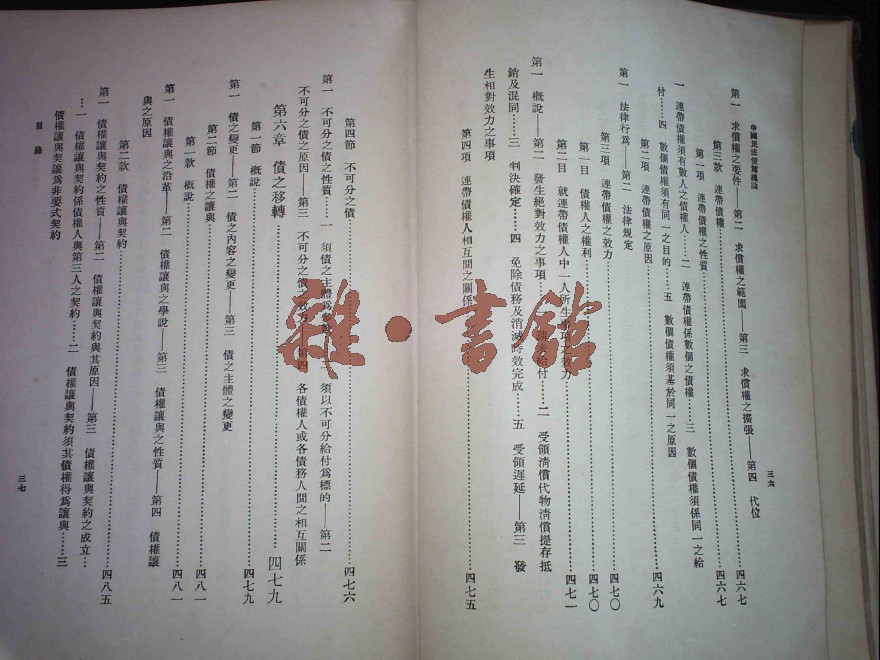 中國民法債編總論
三六
第一 求償權之要件——第二 求償權之範圍——第三 求償權之擴張——第四 代位
第三款 連帶債權…四六七
第一項 連帶債權之性質…四六七
一 連帶債權須有數人之債權人……二 連帶債權係數個之債權……三 數個債權須係同一之給
付……四 數個債權須有同一之目的……五 數個債權須基於同一之原因
第二項 連帶債權之原因…四六九
第一 法律行爲——第二 法律規定
第三項 連帶債權之效力…四七〇
第一目 債權人之權利…四七〇
第二目 就連帶債權人中一人所生事項之效力…四七一
第一 概說——第二 發生絕對效力之事項 請求給付……二 受領淸償代物淸償提存抵
銷及混同……三 判決確定……四 免除債務及消滅時效完成……五 受領遲延——第三 發
生相對效力之事項
第四項 連帶債權人相互間之關係…四七五
第四節 不可分之債…四七六
第一 不可分之債之性質……一 須債之主體爲多數 須以不可分給付爲標的——第二
不可分之債之原因——第三 不可分之債之效力 第四 各債權人或各債務人間之相互關係
第六章 債之移轉…四七九
第一節 槪說…四七九
第一 債之變更——第二 債之內容之變更——第三 債之主體之變更
第二節 債權之讓與…四八一
第一款 槪說…四八一
第一 債權讓與之沿革——第二 債權讓與之學說——第三 債權讓與之性質——第四 債權讓
與之原因
第二款 債權讓與契約…四八五
第一 債權讓與契約之性質——第二 債權讓與契約與其原因——第三 債權讓與契約之成立…
…一 債權讓與契約係債權人與第三人之契約……二 債權讓與契約須其債權得爲讓與……三
債權讓與契讓爲非要式契約
目錄
三七
雜·書館